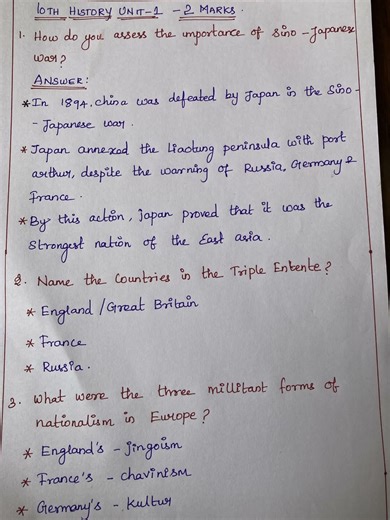 10TH HISTORY UNIT-1 - 2 MARKS.
1. How do you assess the importance of Sino-Japanese
war?
ANSWER:
* In 1894, China was defeated by Japan in the Sino-
- Japanese war.
* Japan annexed the Liaotung peninsula with port
arthur, despite the warning of Russia, Germany &
France.
* By this action, japan proved that it was the
strongest nation of the East asia.
2. Name the Countries in the Triple Entente?
* England /Great Britain
* France
* Russia.
3. What were the three millitant forms of
nationalism in Europe?
* England's - jingoism
* France's - chavinism
* Germany's - kultur